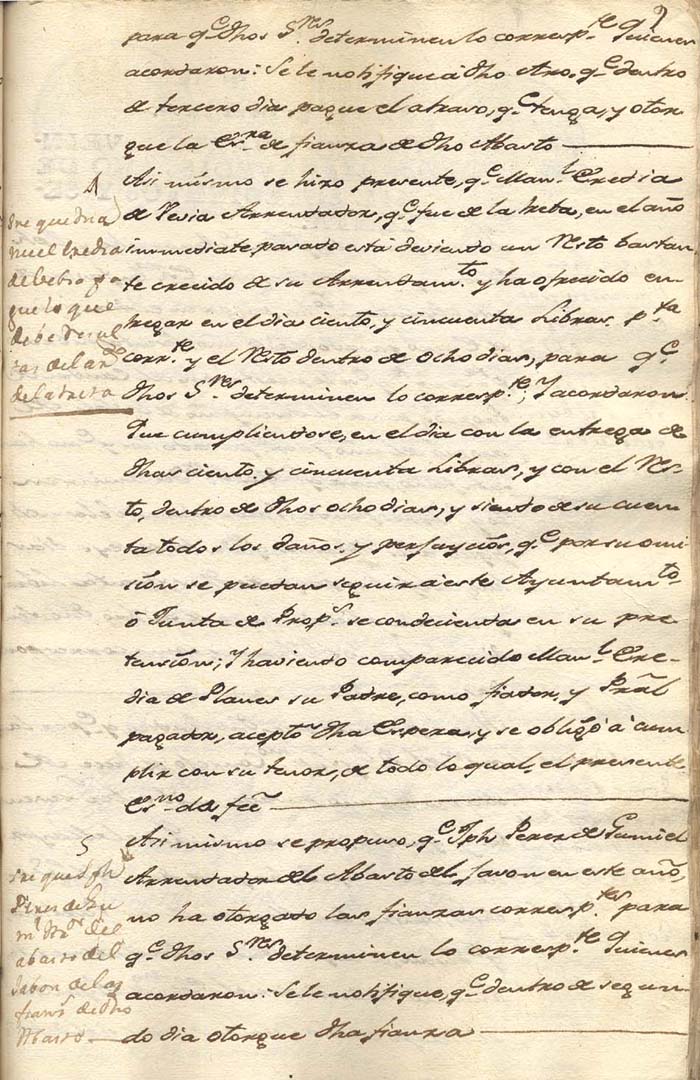 para q.e dhos S.res determinen lo corresp.te Quienes
acordaron: Se le notifique a dho Arro. q.e dentro
de tercero dia pague el atraso, q.e tenga, y otor-
gue la Es.ra de fianza de dho Abasto
4
Asi mismo se hizo presente, q.e Man.l Eredia
de Arrendador, q.e fue de la en el año
immediate pasado está deviendo un Resto bastan-
te crecido de su Arrendam.to y ha ofrecido en-
tregar en el dia ciento, y cinquenta Libras p.ta
corr.te y el Resto dentro de ocho dias, para q.e
dhos S.res determinen lo corresp.te; Y acordaron:
Que cumpliendose, en el dia con la entrega de
dhas ciento y cinquenta Libras, y con el Res-
to, dentro de dhos ocho dias, y siendo de su cuen-
ta todos los daños, y perjuycios, q.e por su omi-
sion se puedan seguir a este Ayuntam.to
ó Junta de Prop.s se condecienda en su pre-
tension; Y haviendo comparecido Man.l Ere-
dia de Planes su Padre, como fiador, y Pral
pagador, aceptó dha Espera, y se obligó à cum-
plir con su tenor, de todo lo qual, el presente
Es.no da feé
5
Asi mismo se propuso, q.e Jph Perez de Gumiel
Arrendador del Abasto del Javon en este año,
no ha otorgado las fianzas corresp.tes para
q.e dhos S.res determinen lo corresp.te Quienes
acordaron: Se le notifique, q.e dentro de segun-
do dia otorgue dha fianza
Sre que
Eredia
pa
gue lo que
debe de resul
tas del
de la
Sre que Jph
Perez de Gu
m.l del
abasto del
Jabon de las
fians de dho
Abasto